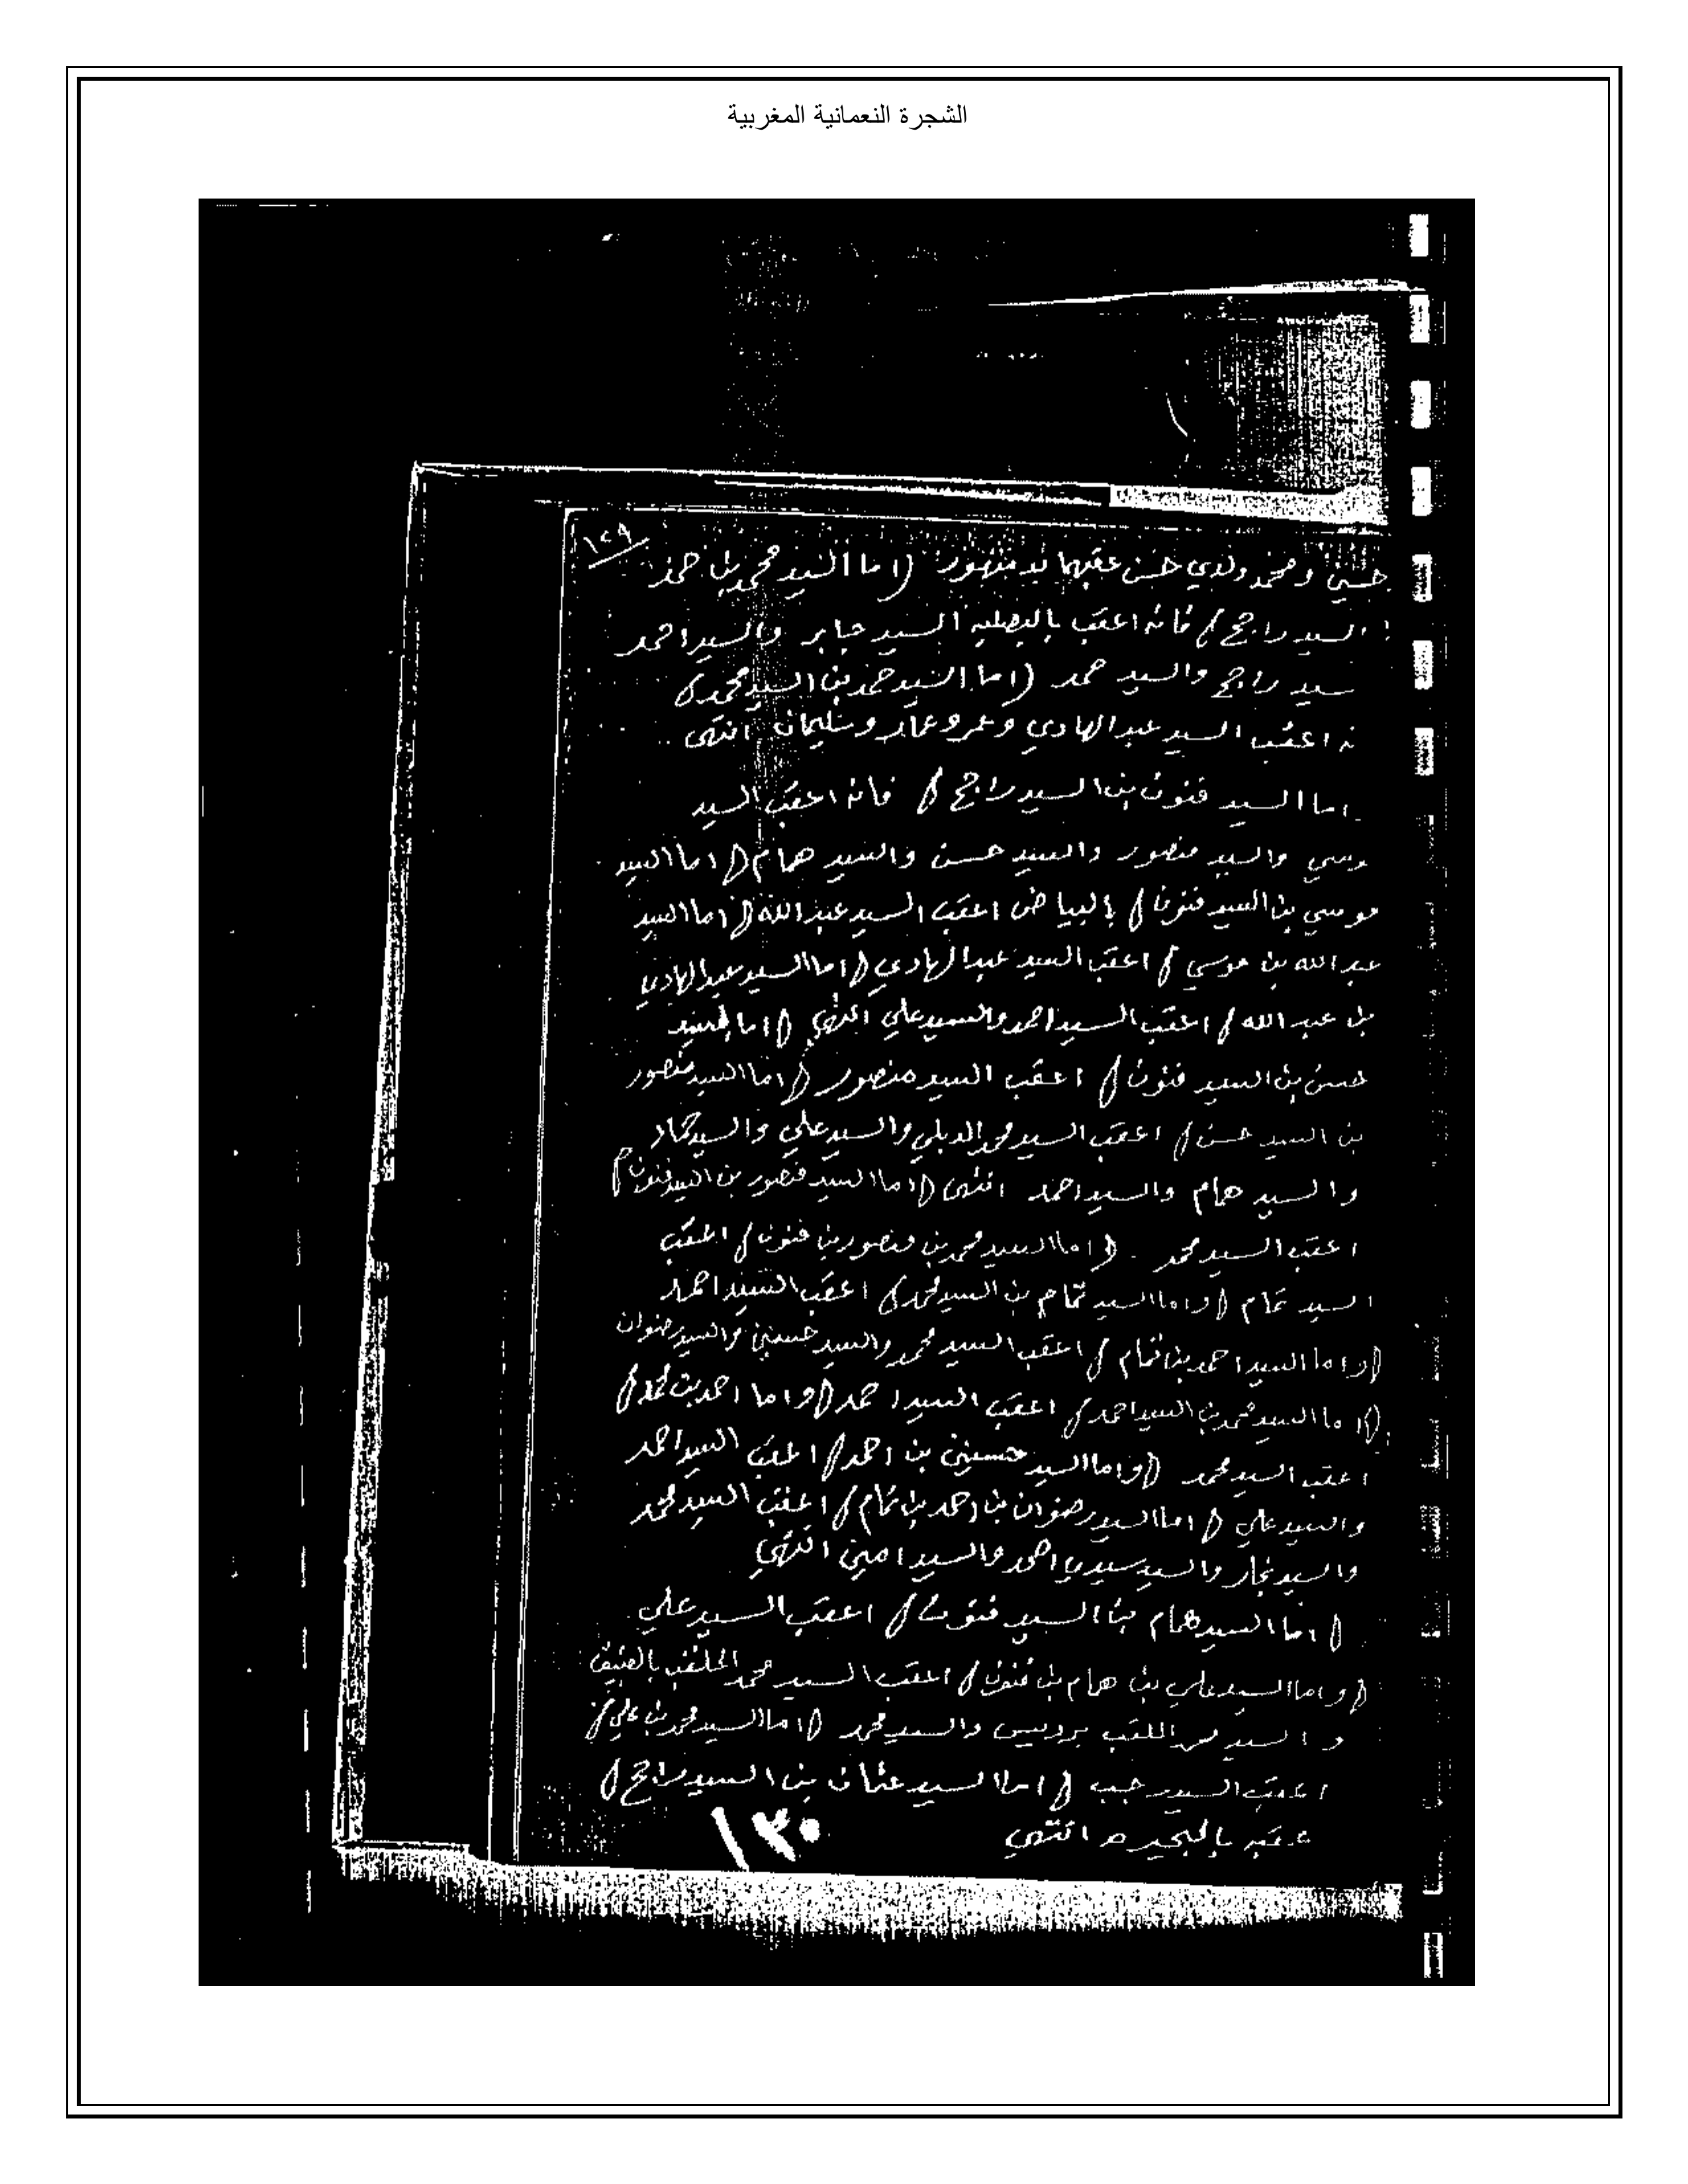 الشجرة النعمانية المغربية
١٢٩
حسين ومحمد ولدي حسن عقبهما (اما السيد محمد بن حمد
السيد راجح) فانه اعقب السيد جابر والسيد احمد
سيد راجح والسيد حمد (اما السيد حمد بن السيد محمد)
نه اعقب السيد عبد الهادي وعمر وعمار وسليمان انتهى
اما السيد فنون بن السيد راجح) فانه اعقب السيد
وسي والسيد منصور والسيد حسن والسيد همام (اما السيد
موسي بن السيد فنون) بالبياض اعقب السيد عبد الله (اما السيد
عبد الله بن موسي) اعقب السيد عبد الهادي (اما السيد عبد الهادي
بن عبد الله) اعقب السيد احمد والسيد علي انتهي (اما السيد
حسن بن السيد فنون) اعقب السيد منصور (اما السيد منصور
بن السيد حسن) اعقب السيد محمد والسيد علي والسيد حماد
والسيد همام والسيد احمد انتهى (اما السيد منصور بن السيد فنون)
اعقب السيد محمد (اما السيد محمد بن منصور بن فنون) اعقب
السيد تمام (واما السيد تمام بن السيد محمد) اعقب السيد احمد
(واما السيد احمد بن تمام) اعقب السيد محمد والسيد حسنين والسيد رضوان
(اما السيد محمد بن السيد احمد) اعقب السيد احمد (واما احمد بن محمد)
اعقب السيد محمد (واما السيد حسنين بن احمد) اعقب السيد احمد
والسيد علي (اما السيد رضوان بن احمد بن تمام) اعقب السيد محمد
والسيد نجار والسيد سيدي احمد والسيد امين انتهي
(اما السيد همام بن السيد فنون) اعقب السيد علي
(واما السيد علي بن همام بن فنون) اعقب السيد محمد الملقب
والسيد الملقب والسيد محمد (اما السيد محمد بن علي)
اعقب السيد رجب (اما السيد عثمان بن السيد راجح)
عقبه بالبحيره انتهي
١٣٠